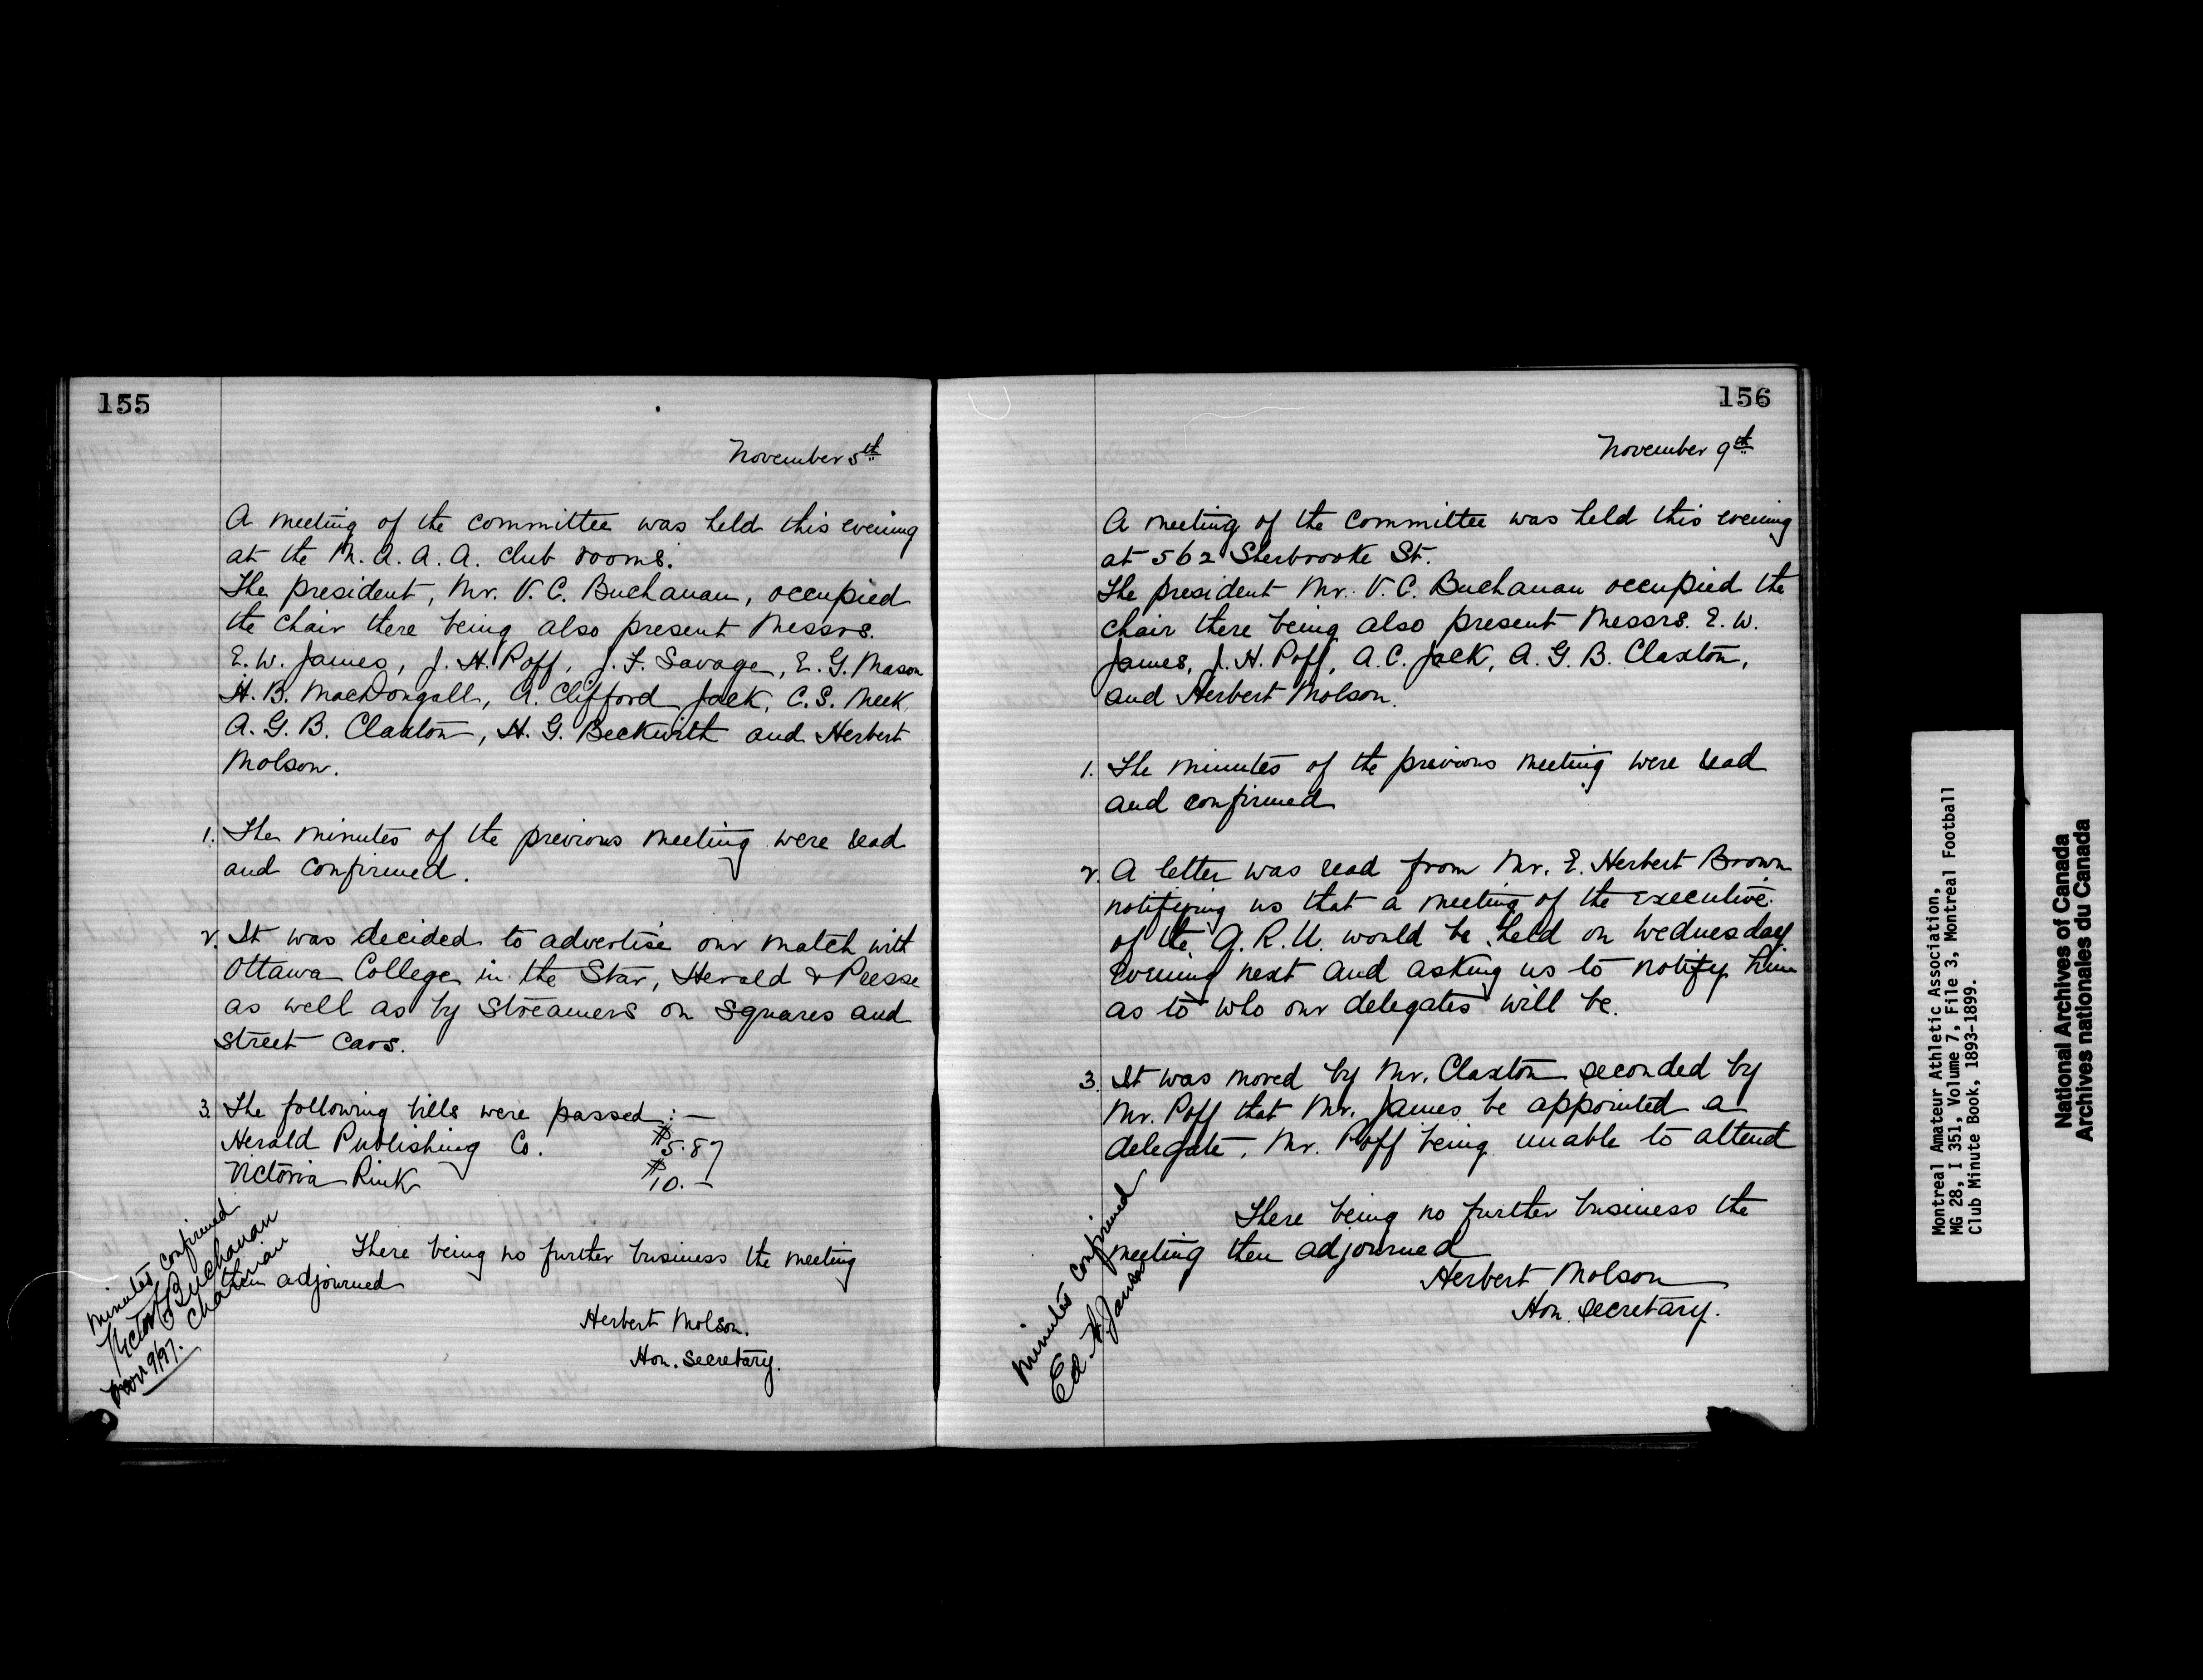 155
November 5th
A meeting of the committee was held this evening
at the M. A. A. A. club rooms.
The president, Mr. V. C. Buchanan, occupied
the chair there being also present Messrs.
E. W. James, J. H. Poff, J. F. Savage, E. G. Mason
H. B. MacDougall, A. Clifford Jack, C. S. Meek,
A. G. B. Claxton, H. G. Beckwith and Herbert
Molson.
1. The minutes of the previous meeting were read
and confirmed.
2. It was decided to advertise our match with
Ottawa College in the Star, Herald & Presse
as well as by streamers on squares and
street cars.
3. The following bills were passed :—
Herald Publishing Co. $5.87
Victoria Rink $10.—
There being no further business the meeting
then adjourned
Herbert Molson.
Hon. Secretary.
Minutes confirmed
Victor Buchanan
Chairman
Nov 9/97.
156
November 9th
A meeting of the committee was held this evening
at 562 Sherbrooke St.
The president Mr. V. C. Buchanan occupied the
chair there being also present Messrs. E. W.
James, J. H. Poff, A. C. Jack, A. G. B. Claxton,
and Herbert Molson.
1. The minutes of the previous meeting were read
and confirmed
2. A letter was read from Mr. E. Herbert Brown
notifying us that a meeting of the executive
of the Q. R. U. would be held on Wednesday
evening next and asking us to notify him
as to who our delegates will be.
3. It was moved by Mr. Claxton seconded by
Mr. Poff that Mr. James be appointed a
delegate, Mr. Poff being unable to attend
There being no further business the
meeting then adjourned
Herbert Molson
Hon. Secretary.
Minutes confirmed
Ed. W. James
Montreal Amateur Athletic Association,
MG 28, I 351, Volume 7, File 3, Montreal Football
Club Minute Book, 1893-1899.
National Archives of Canada
Archives nationales du Canada